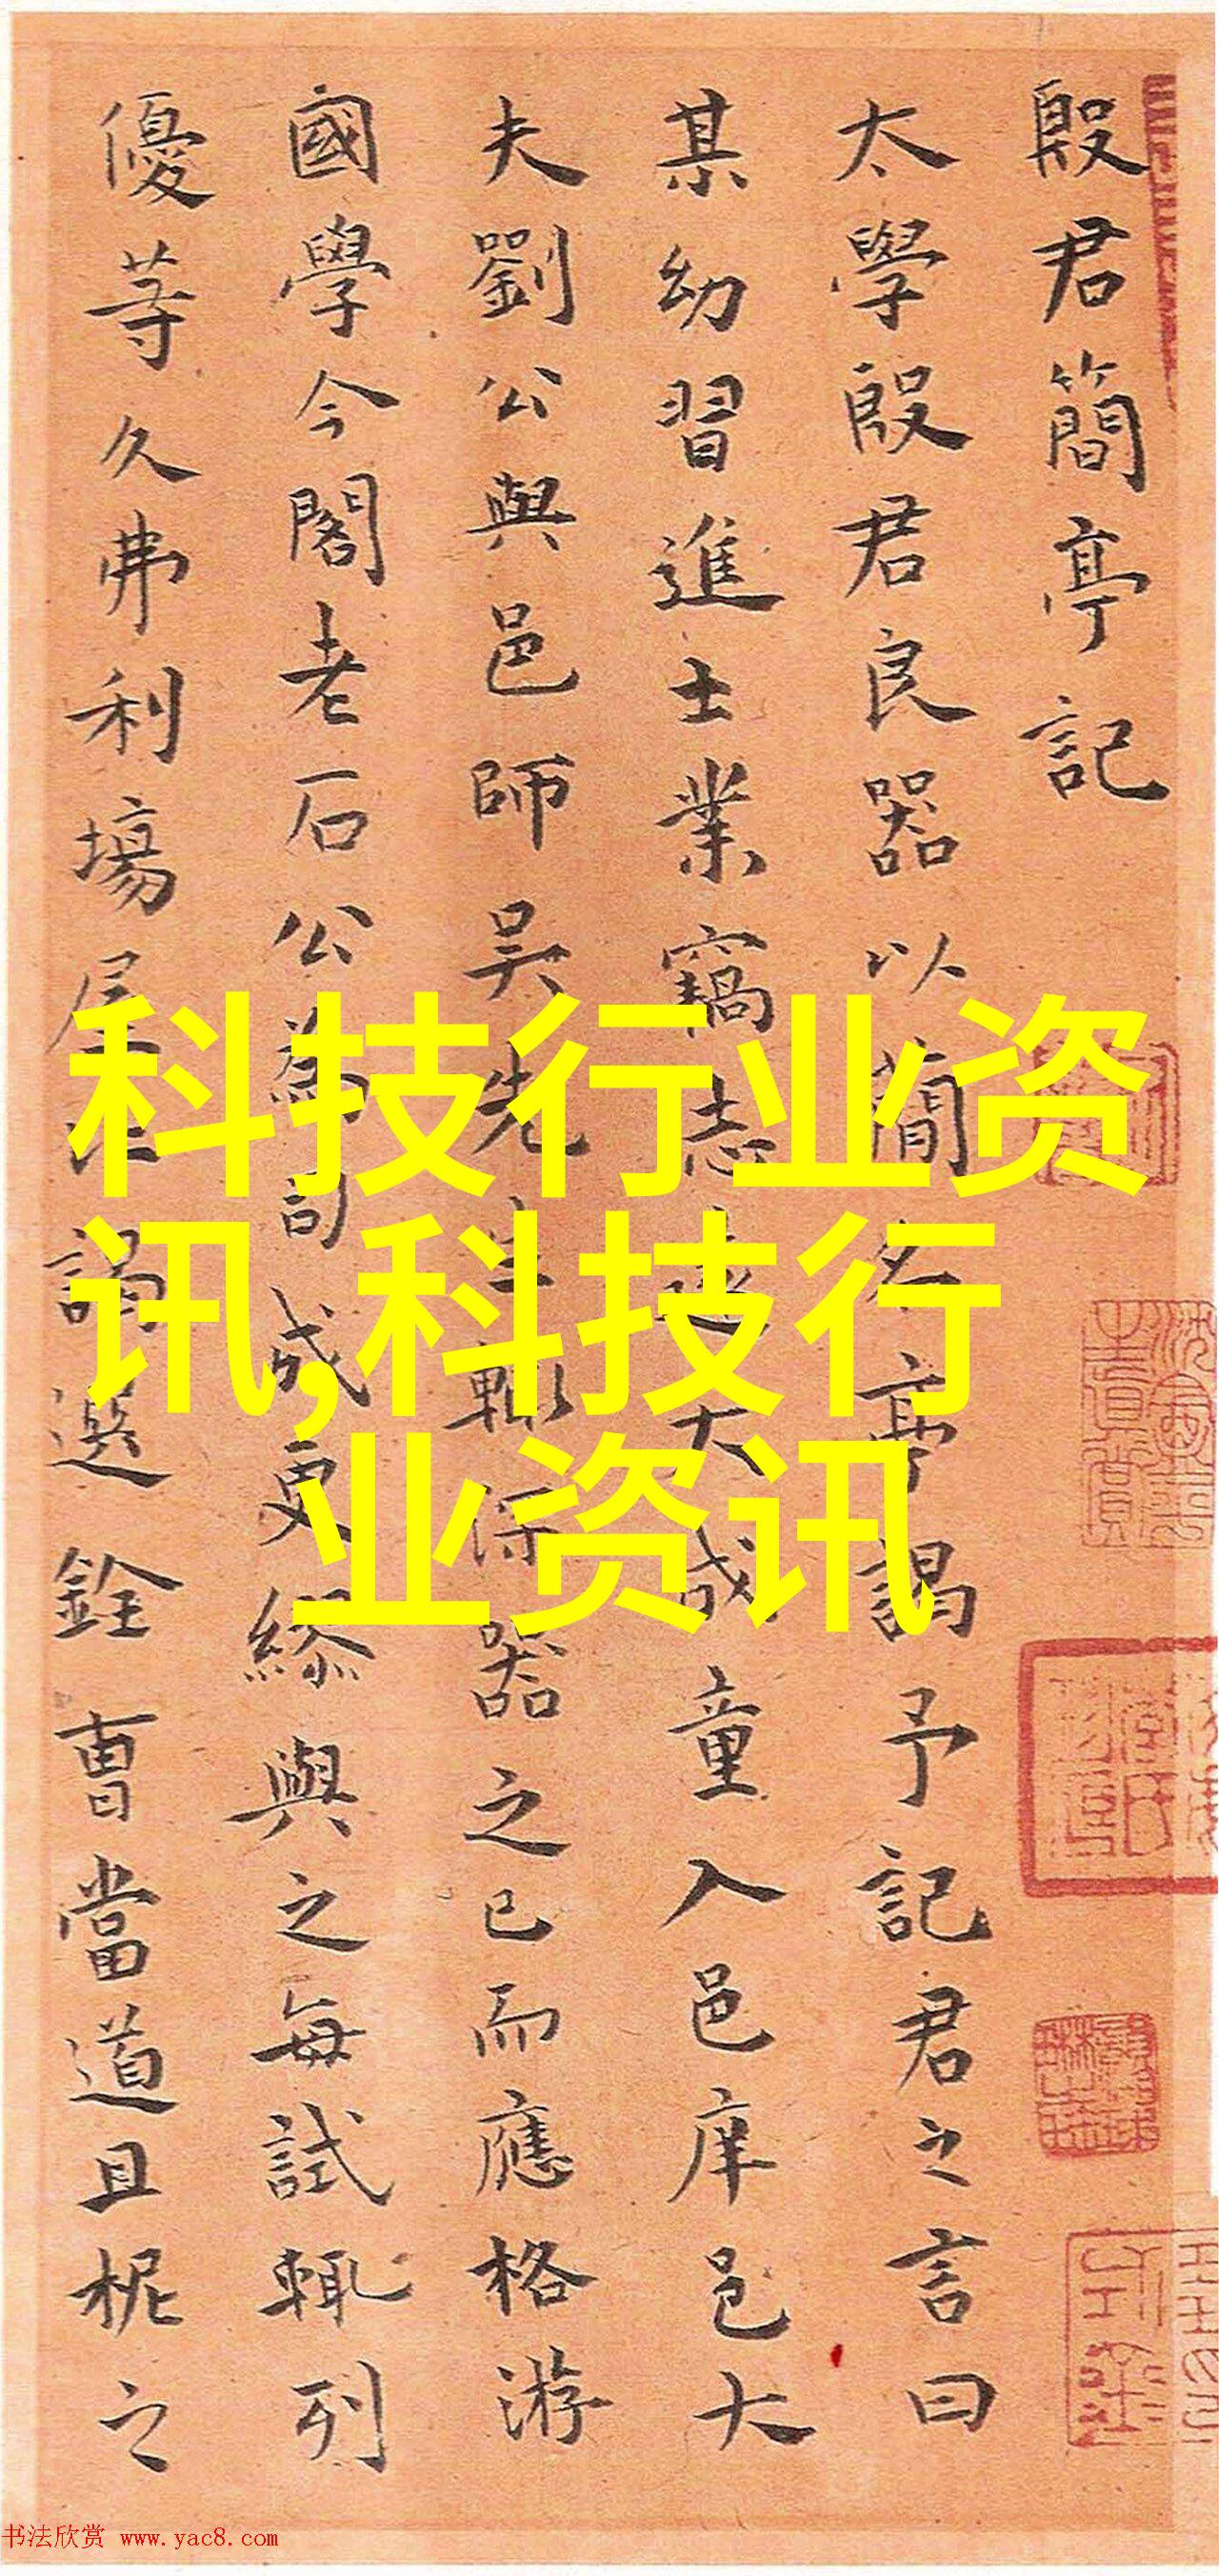 殷君簡亭記
太學殷君良器以簡名亭謁予記君之言曰
某幼習進士業竊志遠大成童入邑庠邑大
夫劉公與邑師吳先生輒深器之已而應格游
國學今閣老石公為司成更與之每試輒列
優等久弗利場屋謁選銓曹當道且柅之
科技行业资
讯,科技行
业资讯
书法欣赏 www.yac8.com